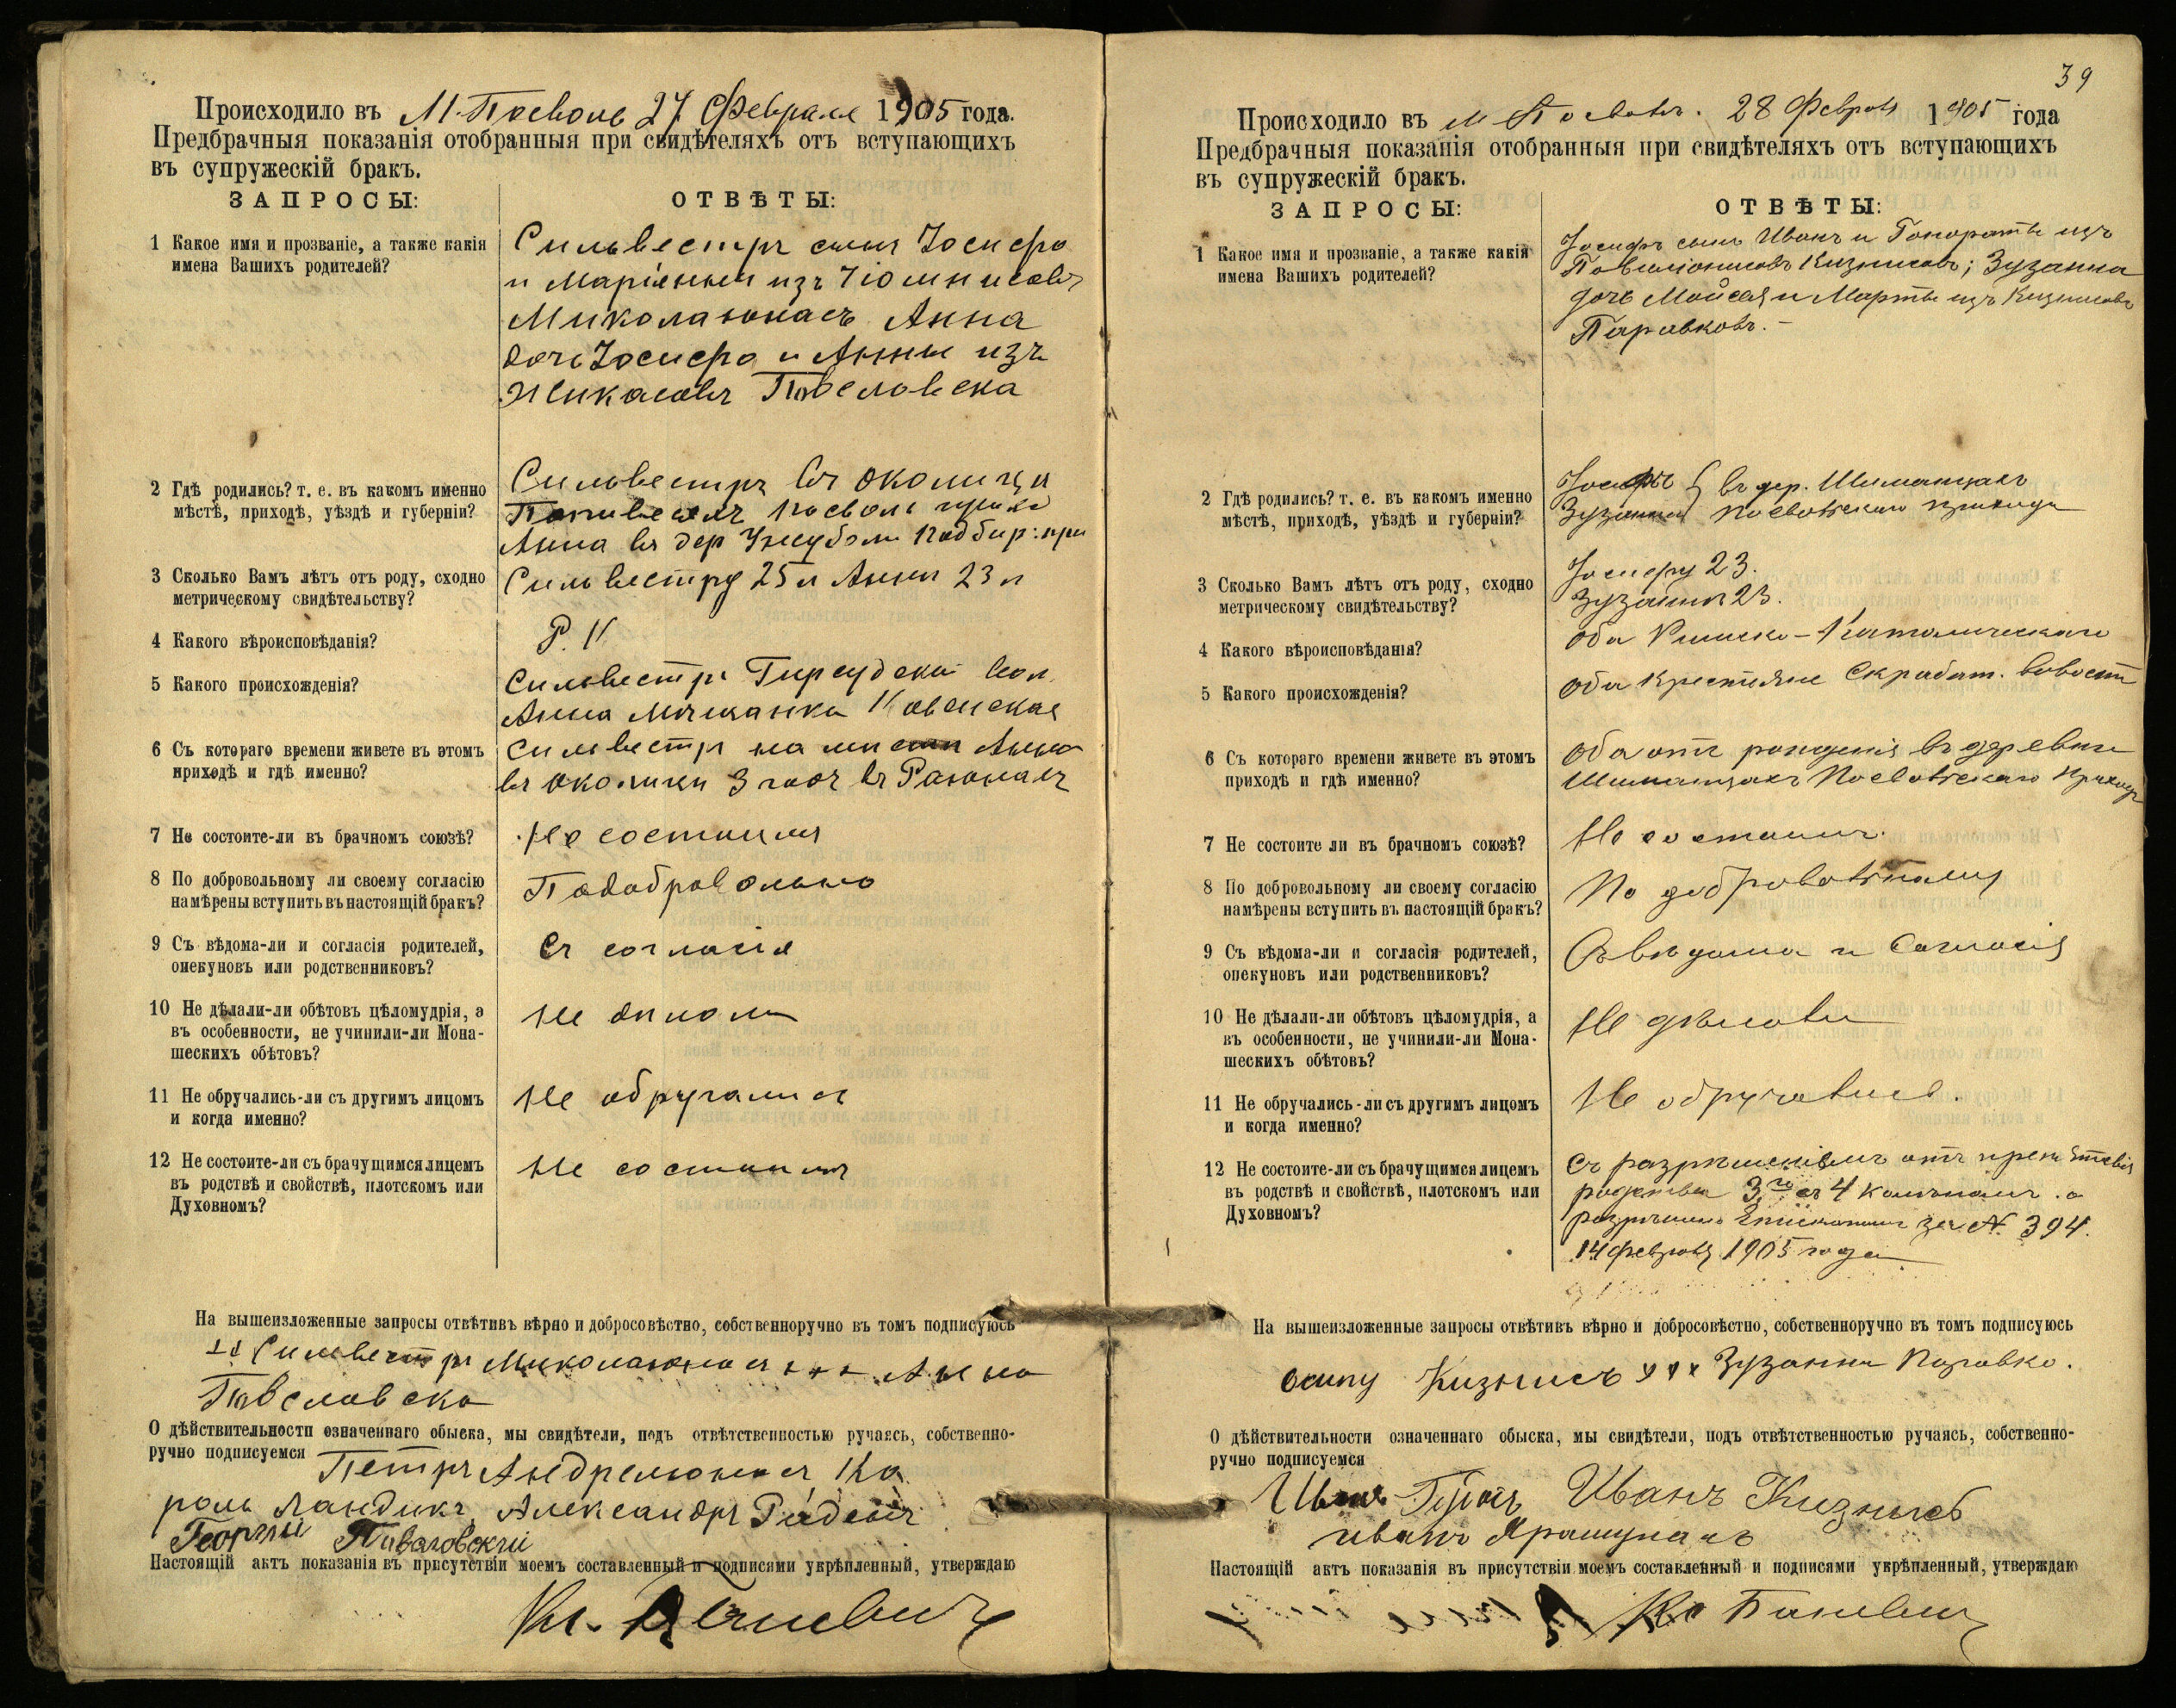 Происходило въ М. Посволь 27 Февраля 1905 года.
Предбрачныя показанія отобранныя при свидѣтеляхъ отъ вступающихъ
въ супружескій бракъ.
ЗАПРОСЫ: ОТВѢТЫ:
1 Какое имя и прозваніе, а также какія
имена Вашихъ родителей?
Сильвестръ сынъ Іосифа
и Маріянны изъ
Миколаюнасъ Анна
дочь Іосифа и Анны изъ
2 Гдѣ родились? т. е. въ какомъ именно
мѣстѣ, приходѣ, уѣздѣ и губерніи?
Сильвестръ въ околицы
Анна въ дер
3 Сколько Вамъ лѣтъ отъ роду, сходно
метрическому свидѣтельству?
Сильвестру 25 л Анни 23 л
4 Какого вѣроисповѣданія?
Р. К
5 Какого происхожденія?
Сильвестръ
Анна мѣщанка Ковенская
6 Съ котораго времени живете въ этомъ
приходѣ и гдѣ именно?
Сильвестръ на Анна
въ околицы 3 года въ
7 Не состоите-ли въ брачномъ союзѣ?
Не состоимъ
8 По добровольному ли своему согласію
намѣрены вступить въ настоящій бракъ?
Подобровольно
9 Съ вѣдома-ли и согласія родителей,
опекуновъ или родственниковъ?
Съ согласія
10 Не дѣлали-ли обѣтовъ цѣломудрія, а
въ особенности, не учинили-ли Мона-
шескихъ обѣтовъ?
Не дилали
11 Не обручались-ли съ другимъ лицомъ
и когда именно?
Не обручались
12 Не состоите-ли съ брачущимся лицемъ
въ родствѣ и свойствѣ, плотскомъ или
Духовномъ?
Не состоимъ
На вышеизложенные запросы отвѣтивъ вѣрно и добросовѣстно, собственноручно въ томъ подписуюсь
Сильвестръ Миколаюнасъ +++ Анна
О дѣйствительности означеннаго обыска, мы свидѣтели, подъ отвѣтственностью ручаясь, собственно-
ручно подписуемся
Петръ Андрелюнасъ Ка
роль Ландикъ Александръ
Георгий
Настоящій актъ показанія въ присутствіи моемъ составленный и подписями укрѣпленный, утверждаю
39
Происходило въ м Посволь. 28 Февраля 1905 года
Предбрачныя показанія отобранныя при свидѣтеляхъ отъ вступающихъ
въ супружескій бракъ.
ЗАПРОСЫ: ОТВѢТЫ:
1 Какое имя и прозваніе, а также какія
имена Вашихъ родителей?
Іосифъ сынъ Иванъ и Гонораты изъ
Кизнисовъ; Зузанна
дочь Мойсея и Марты изъ Кизнисовъ
Паровковъ.–
2 Гдѣ родились? т. е. въ какомъ именно
мѣстѣ, приходѣ, уѣздѣ и губерніи?
Іосифъ } въ дер. Шиманцахъ
Зузанна Посвольскаго прихода
3 Сколько Вамъ лѣтъ отъ роду, сходно
метрическому свидѣтельству?
Іосифу 23.
Зузаннѣ 23.
4 Какого вѣроисповѣданія?
Оба Римско-Католическаго
5 Какого происхожденія?
Оба крестьяне Скрабат. волости
6 Съ котораго времени живете въ этомъ
приходѣ и гдѣ именно?
Оба отъ рожденія въ деревни
Шиманцахъ Посвольскаго прихода
7 Не состоите ли въ брачномъ союзѣ?
Не состоимъ.
8 По добровольному ли своему согласію
намѣрены вступить въ настоящій бракъ?
По добровольному
9 Съ вѣдома-ли и согласія родителей,
опекуновъ или родственниковъ?
Съ вѣдома и согласія
10 Не дѣлали-ли обѣтовъ цѣломудрія, а
въ особенности, не учинили-ли Мона-
шескихъ обѣтовъ?
Не дѣлали
11 Не обручались-ли съ другимъ лицомъ
и когда именно?
Не обручались.
12 Не состоите-ли съ брачущимся лицемъ
въ родствѣ и свойствѣ, плотскомъ или
Духовномъ?
Съ разрѣшеніемъ отъ препятствія
родства 3го съ 4
за N. 394.
14 февраля 1905 года
На вышеизложенные запросы отвѣтивъ вѣрно и добросовѣстно, собственноручно въ томъ подписуюсь
Кизнисъ ххх Зузанна Паровко.
О дѣйствительности означеннаго обыска, мы свидѣтели, подъ отвѣтственностью ручаясь, собственно-
ручно подписуемся
Иванъ Кизнысъ
иванъ
Настоящій актъ показанія въ присутствіи моемъ составленный и подписями укрѣпленный, утверждаю